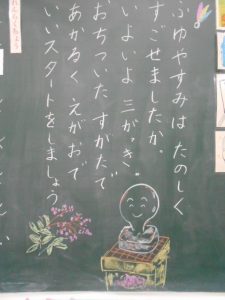 ふゆやすみは たのしく
すごせましたか。
いよいよ 三がっき。
おちついた すがたで
あかるく えがおで
いいスタートをしましょう
れんらくちょう